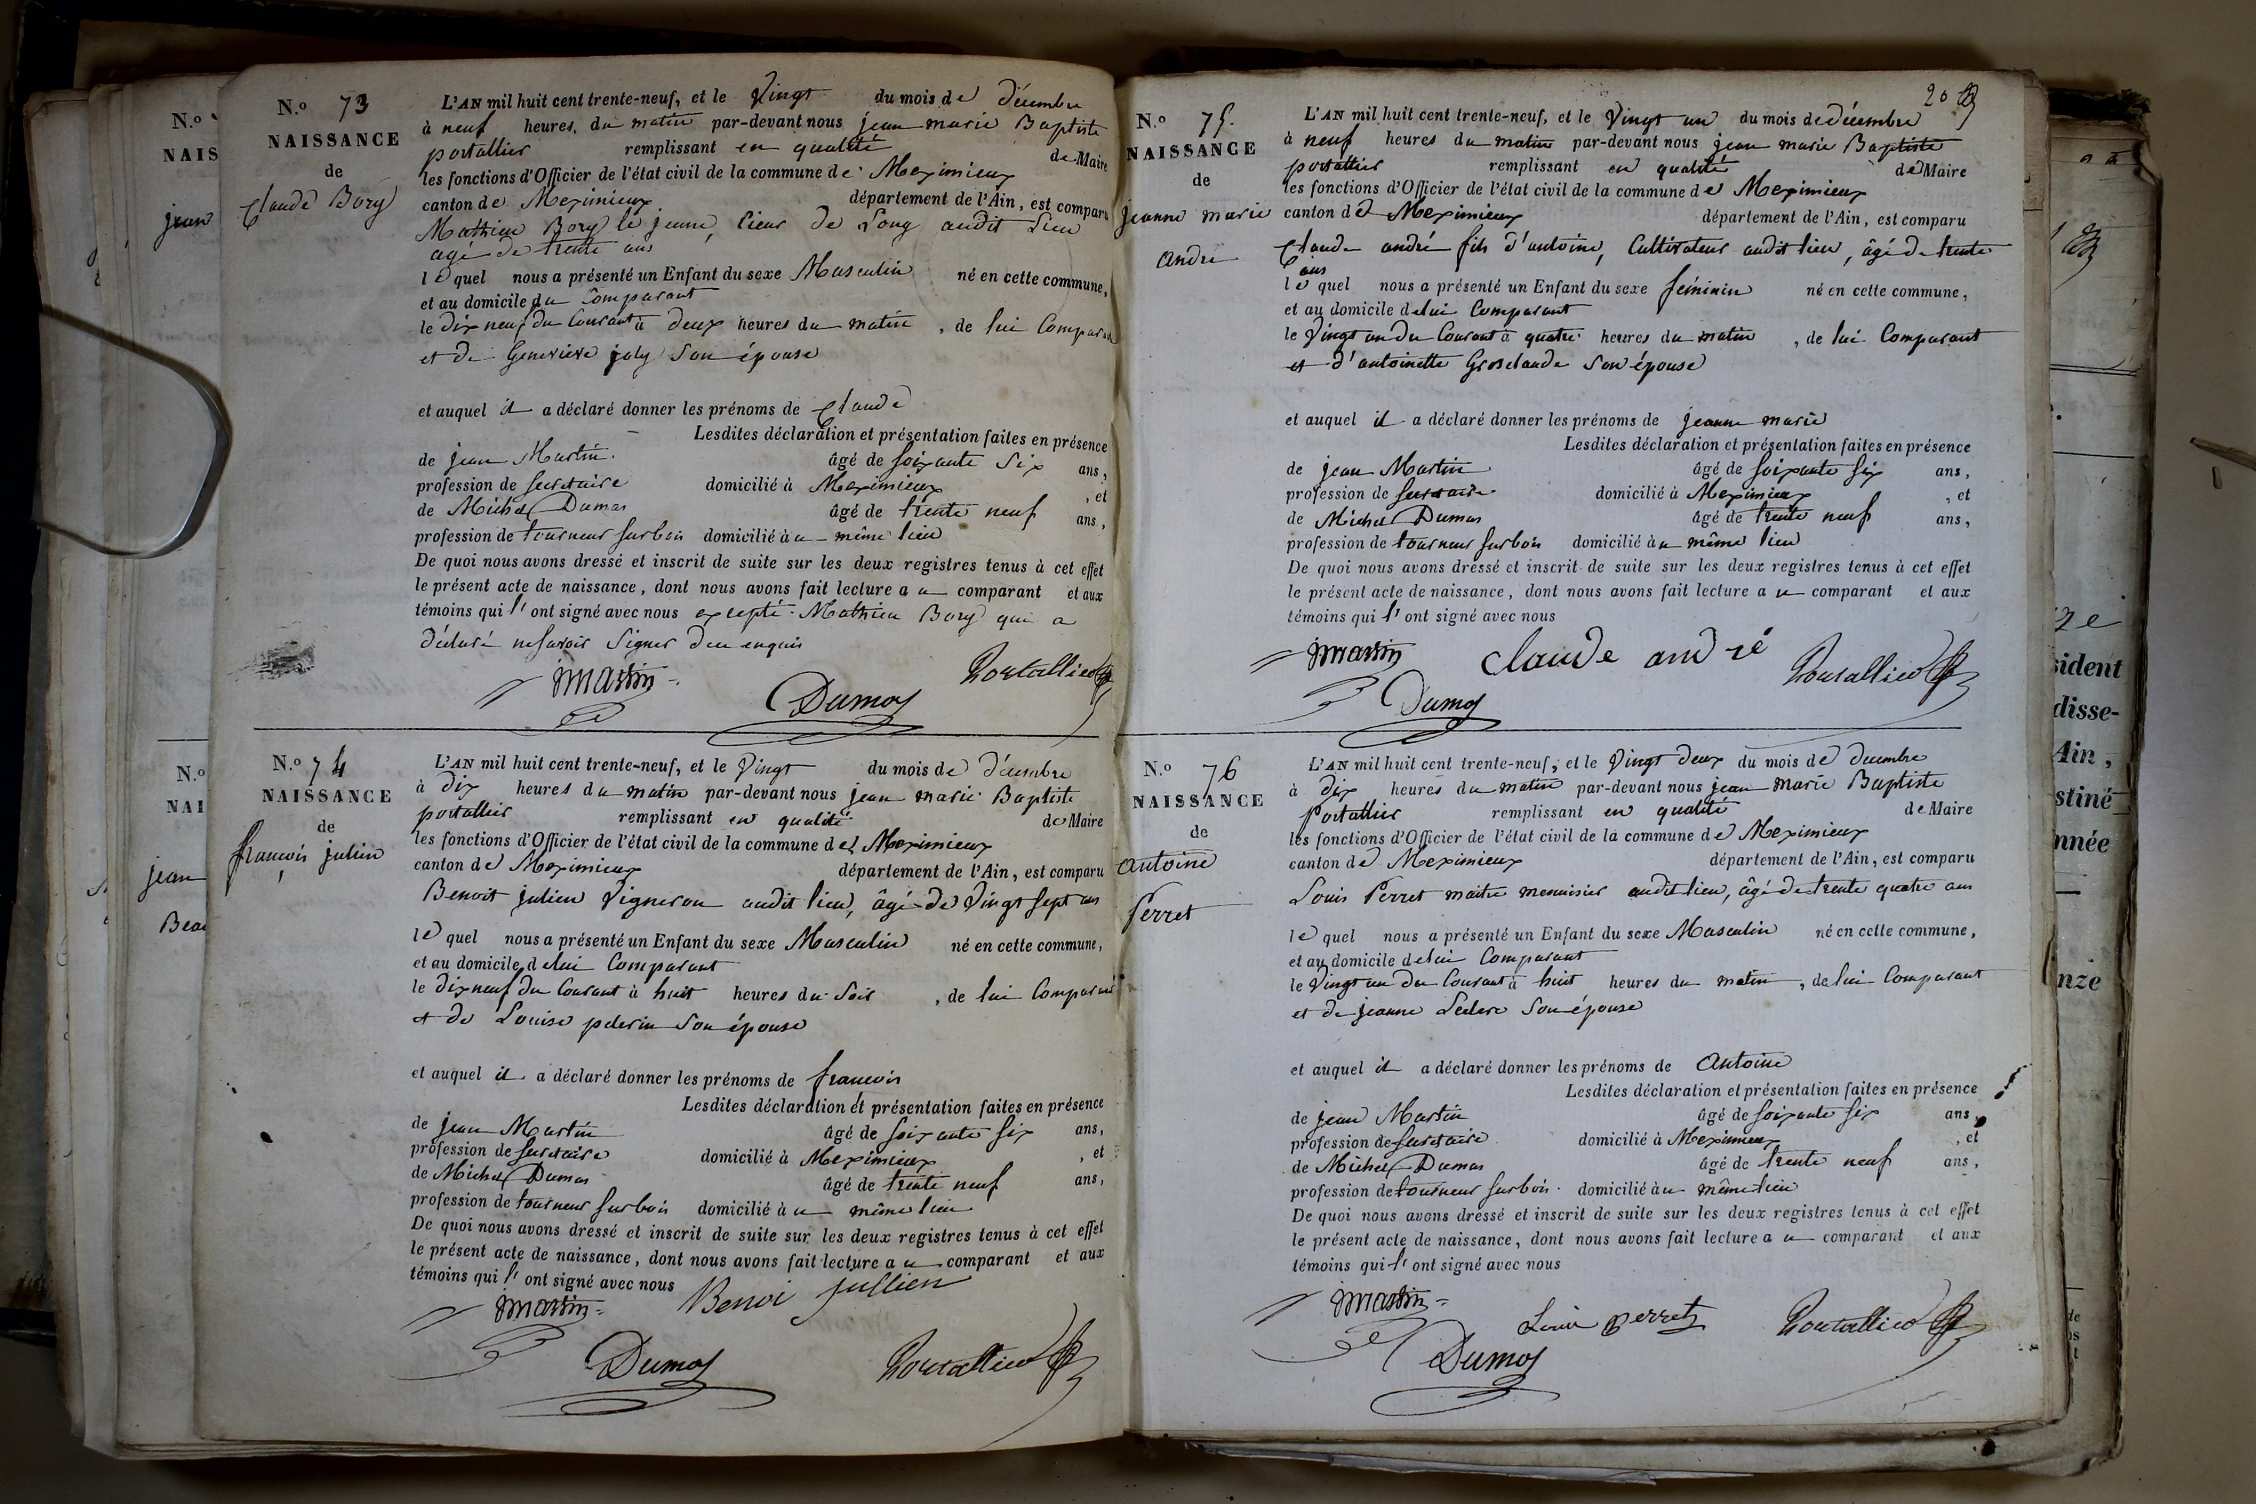 N.o 73
NAISSANCE
de
Claude Bory
L'AN mil huit cent trente-neuf, et le Vingt du mois de décembre
à neuf heures, du matin par-devant nous jean marie Baptiste
portallier remplissant en qualité de Maire
les fonctions d'Officier de l'état civil de la commune de Meximieux
canton de Meximieux département de l'Ain, est comparu
Mathieu Bory le jeune, Sieur de Long audit Lieu
agé de trente ans
lequel nous a présenté un Enfant du sexe Masculin né en cette commune,
et au domicile du Comparant
le dix neuf du Courant à deux heures du matin, de lui Comparant
et de Genevieve joly Son épouse
et auquel il a déclaré donner les prénoms de Claude
Lesdites déclaration et présentation faites en présence
de jean Martin âgé de Soixante Six ans,
profession de Secretaire domicilié à Meximieux, et
de Michel Dumas âgé de trente neuf ans,
profession de tourneur Sur bois domicilié à u même lieu
De quoi nous avons dressé et inscrit de suite sur les deux registres tenus à cet effet
le présent acte de naissance, dont nous avons fait lecture a u comparant et aux
témoins qui l' ont signé avec nous excepté Mathieu Bory qui a
déclaré ne Savoir Signer de ce enquis
jmartin Dumas Portallier
N.o 74
NAISSANCE
de
françois julien
L'AN mil huit cent trente-neuf, et le Vingt du mois de décembre
à dix heures du matin par-devant nous jean marie Baptiste
portallier remplissant en qualité de Maire
les fonctions d'Officier de l'état civil de la commune de Meximieux
canton de Meximieux département de l'Ain, est comparu
Benoit julien Vigneron audit lieu, âgé de Vingt Sept ans
lequel nous a présenté un Enfant du sexe Masculin né en cette commune,
et au domicile de lui Comparant
le dix neuf du Courant à huit heures du Soir, de lui Comparant
et de Louise pelerin Son épouse
et auquel il a déclaré donner les prénoms de françois
Lesdites déclaration et présentation faites en présence
de jean Martin âgé de Soixante Six ans,
profession de Secretaire domicilié à Meximieux, et
de Michel Dumas âgé de trente neuf ans,
profession de tourneur Sur bois domicilié à u même lieu
De quoi nous avons dressé et inscrit de suite sur les deux registres tenus à cet effet
le présent acte de naissance, dont nous avons fait lecture a u comparant et aux
témoins qui l' ont signé avec nous
jmartin Benoi jullien
Dumas Portallier
20
N.o 75.
NAISSANCE
de
jeanne marie
andré
L'AN mil huit cent trente-neuf, et le Vingt un du mois de décembre
à neuf heures du matin par-devant nous jean marie Baptiste
portallier remplissant en qualité de Maire
les fonctions d'Officier de l'état civil de la commune de Meximieux
canton de Meximieux département de l'Ain, est comparu
Claude andré fils d'antoine, Cultivateur audit lieu, âgé de trente
ans
lequel nous a présenté un Enfant du sexe féminin né en cette commune,
et au domicile de lui Comparant
le Vingt un du Courant à quatre heures du matin, de lui Comparant
et d'antoinette Grosclaude Son épouse
et auquel il a déclaré donner les prénoms de jeanne marie
Lesdites déclaration et présentation faites en présence
de jean Martin âgé de Soixante Six ans,
profession de Secretaire domicilié à Meximieux, et
de Michel Dumas âgé de trente neuf ans,
profession de tourneur Sur bois domicilié à u même lieu
De quoi nous avons dressé et inscrit de suite sur les deux registres tenus à cet effet
le présent acte de naissance, dont nous avons fait lecture a u comparant et aux
témoins qui l' ont signé avec nous
jmartin claude andré Portallier
Dumas
N.o 76
NAISSANCE
de
antoine
Perret
L'AN mil huit cent trente-neuf, et le Vingt deux du mois de decembre
à dix heures du matin par-devant nous jean marie Baptiste
Portallier remplissant en qualité de Maire
les fonctions d'Officier de l'état civil de la commune de Meximieux
canton de Meximieux département de l'Ain, est comparu
Louis Perret maitre menuisier audit lieu, âgé de trente quatre ans
lequel nous a présenté un Enfant du sexe Masculin né en cette commune,
et au domicile de lui Comparant
le Vingt un du Courant à huit heures du matin, de lui Comparant
et de jeanne Leclerc Son épouse
et auquel il a déclaré donner les prénoms de antoine
Lesdites déclaration et présentation faites en présence
de jean Martin âgé de Soixante Six ans,
profession de Secretaire domicilié à Meximieux, et
de Michel Dumas âgé de trente neuf ans,
profession de tourneur Sur bois domicilié à u même lieu
De quoi nous avons dressé et inscrit de suite sur les deux registres tenus à cet effet
le présent acte de naissance, dont nous avons fait lecture a u comparant et aux
témoins qui l' ont signé avec nous
jmartin Louis perret Portallier
Dumas
N.o
NAIS
jean
N.o
NAI
jean
Beau
sident
disse-
Ain,
stiné
nnée
nze